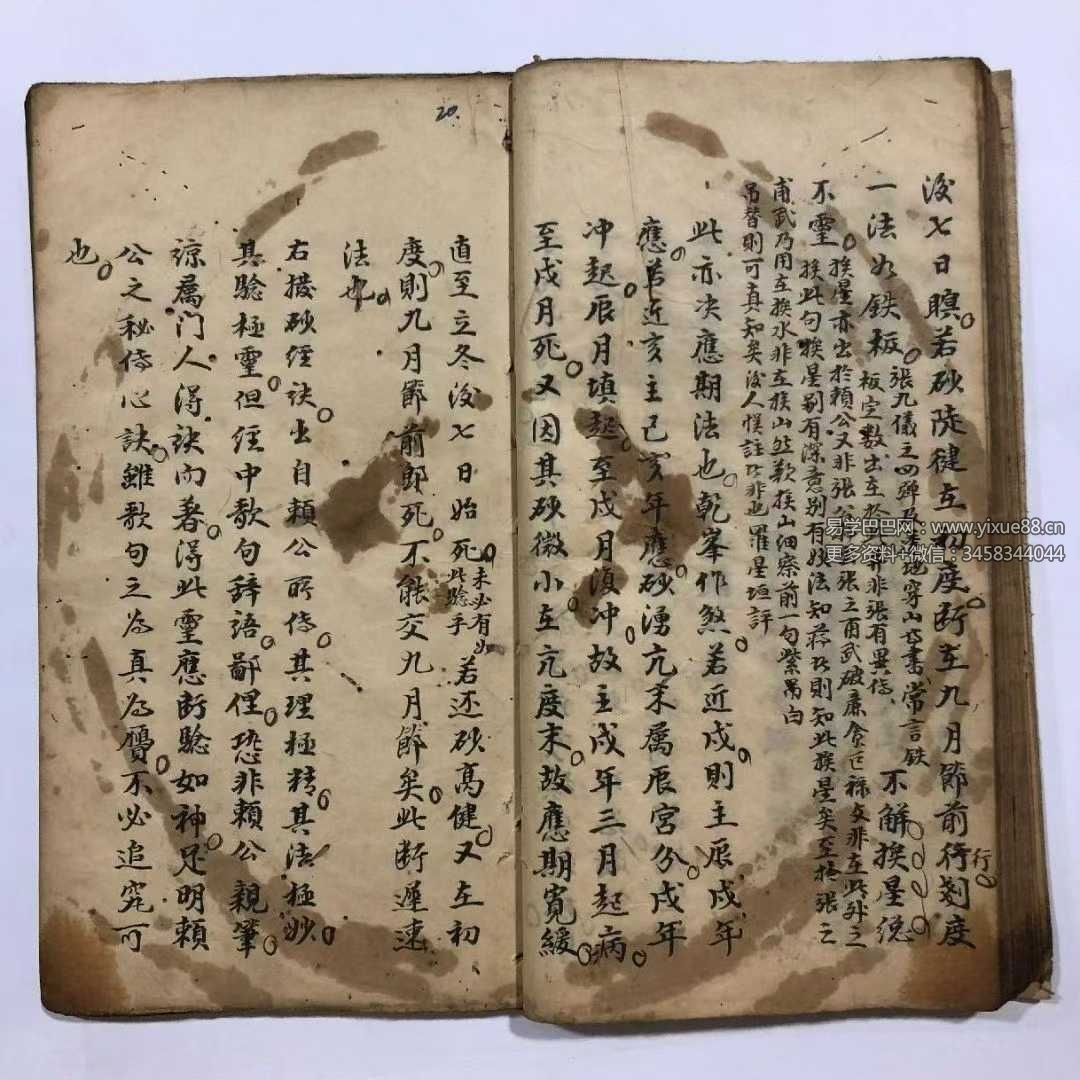 後七日瞑若砂陡健在初度断在九月節前行剗度
行
一法如鉄板
張九儀之四弹乃
穿山
書常言鉄
板定数出在
非張有異傳
不解挨星總
不靈
挨星亦出於賴公又非張
張之甫武破廉貪巨祿文非在此卦之
挨此句挨星别有深意别有妙法知
則知此挨星矣至
張之
甫武乃用在挨水非在挨山然欺挨山細察前一句紫白
吊替則可真知矣後人悮註皆非也羅星垣評
此亦决應期法也乾峯作煞若近戌則主辰戌年
應若近亥主己亥年應砂湧亢末属辰宮分戌年
冲起辰月填起至戌月復冲故主戌年三月起病
至戌月死又因其砂微小在亢度末故應期寛緩
20
直至立冬後七日始死
未必有如
此驗乎
若还砂高健又在初
度則九月節前即死不能交九月節矣此断遲速
法也
右撥砂經訣出自賴公所傳其理極精其法極妙
其驗極靈但經中歌句辞語鄙俚恐非賴公親筆
諒属門人得訣而著得此靈應断驗如神足明賴
公之秘傳心訣雖歌句之為真為贗不必追究可
也
易学巴巴网：www.yixue88.cn
更多资料+微信：3458344044